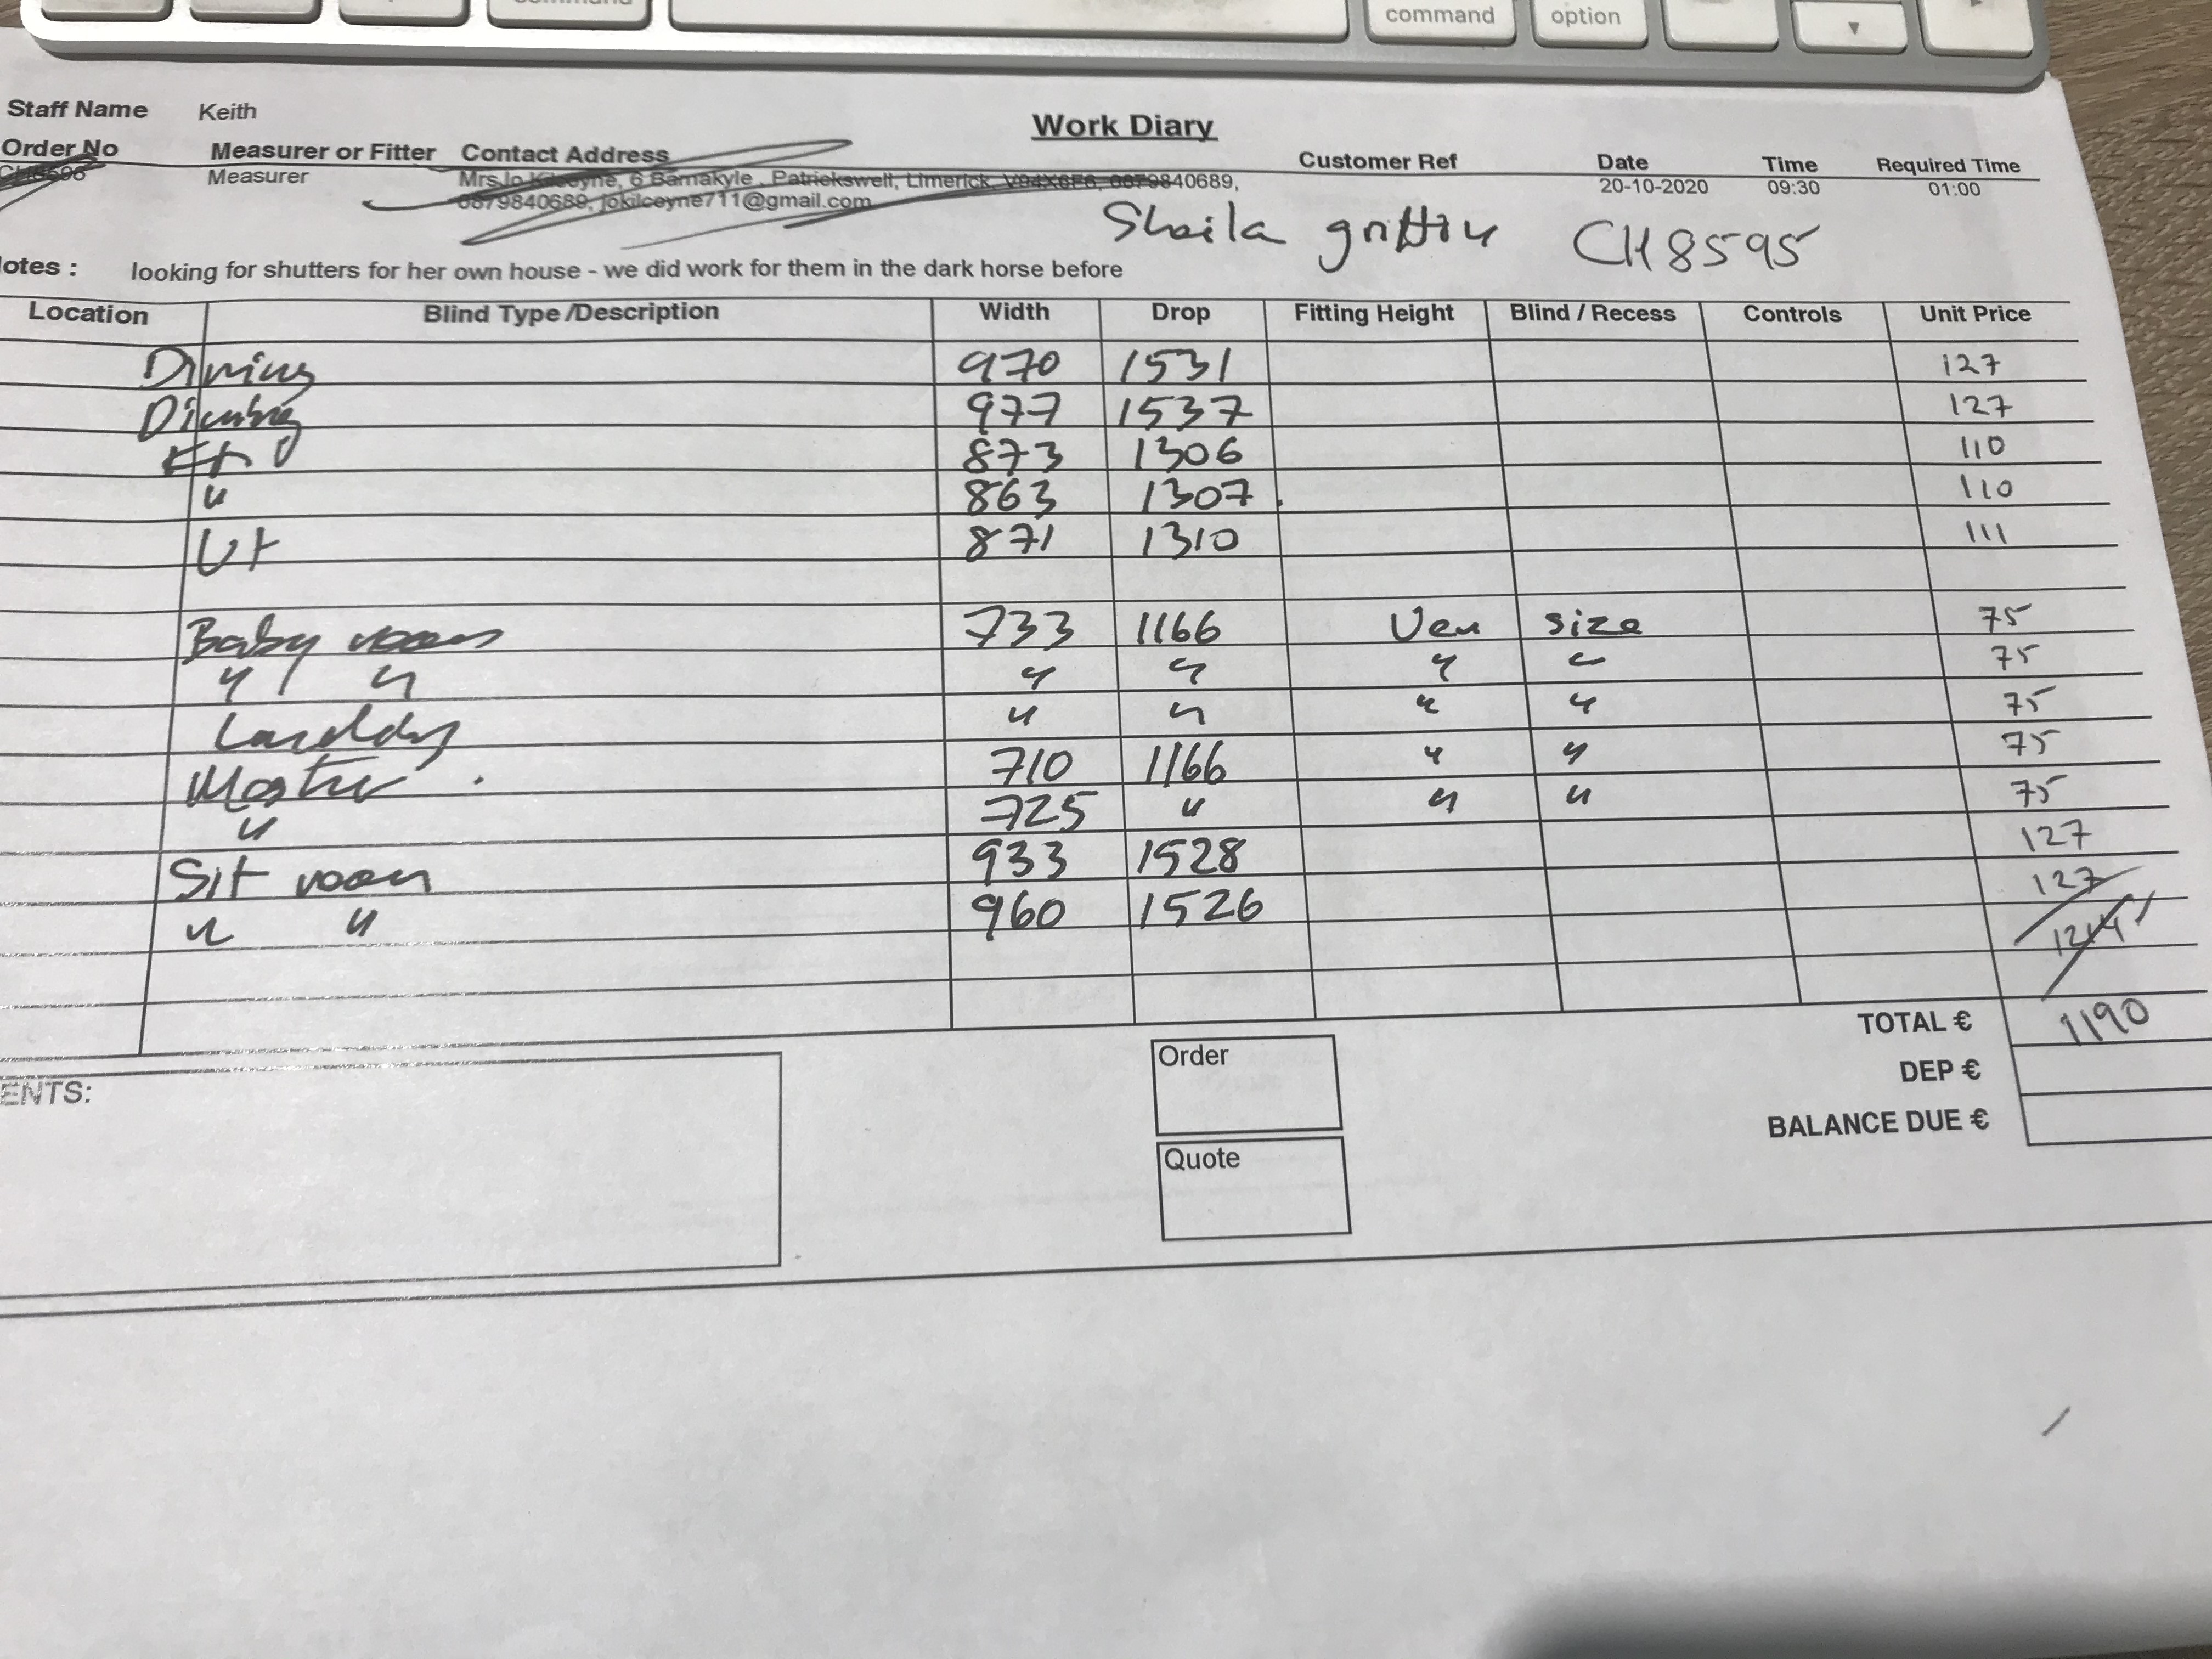 command option
Staff Name Keith
Work Diary
Order No Measurer or Fitter Contact Address Customer Ref Date Time Required Time
Measurer Mrs Jo Kilcoyne, 6 Barnakyle , Patrickswell, Limerick, V94X6F6, 0879840689, 20-10-2020 09:30 01:00
0879840689, jokilcoyne711@gmail.com
Sheila griffin CH8595
otes : looking for shutters for her own house - we did work for them in the dark horse before
Location Blind Type /Description Width Drop Fitting Height Blind / Recess Controls Unit Price
Dining 970 1531 127
Dining 977 1537 127
Kit 873 1306 110
" 863 1307 110
Ut 871 1310 111
Baby room 733 1166 Ven size 75
" " " " " " 75
Landing " " " " 75
Master 710 1166 " " 75
" 725 " " " 75
Sit room 933 1528 127
" " 960 1526 127
TOTAL € 1190
DEP €
BALANCE DUE €
ENTS:
Order
Quote